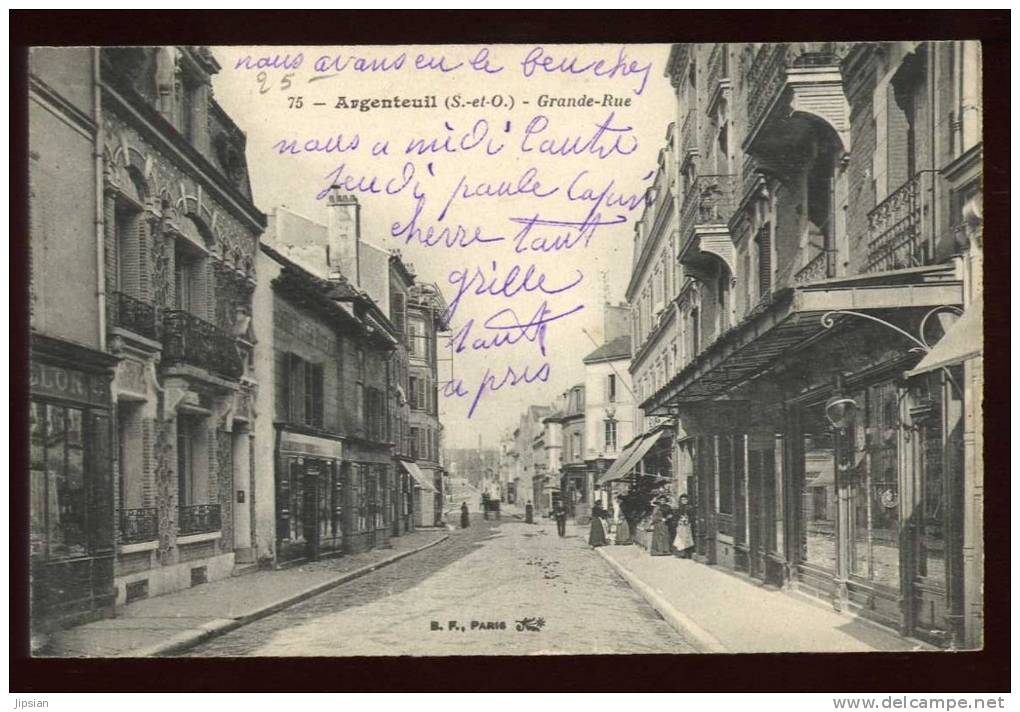 nous avans eu le beuches
25
75 – Argenteuil (S.-et-O.) - Grande-Rue
nous a midi l'autre
jeudi paule
cherre tant
grille
tant
a pris
LLON
B. F., PARIS
jipsian
www.delcampe.net